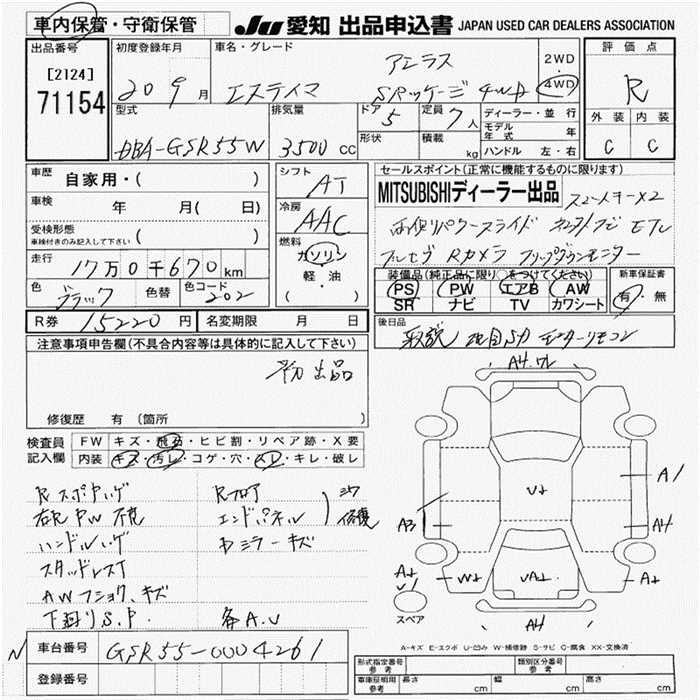 車内保管・守衛保管
JU 愛知 出品申込書 JAPAN USED CAR DEALERS ASSOCIATION
出品番号 [2124] 71154
初度登録年月 20 9月
車名・グレード エスティマ アエラス SRッケージ 4WD
2WD 4WD
評価点 R
外装 C 内装 C
型式 DBA-GSR55W
排気量 3500 cc
ドア 5 定員 7人
形状 積載 kg
ディーラー・並行
モデル年式 年
ハンドル 左・右
車歴 自家用・( )
車検 年 月( 日)
受検形態 ( )
車検付きのみ記入して下さい
走行 17万0千670 km
色 ブラック 色替 色コード 202
シフト AT
冷房 AAC
燃料 ガソリン 軽・油 ( )
R券 15220円 名変期限 月 日
セールスポイント(正常に機能するものに限ります)
MITSUBISHIディーラー出品 スマートキーX2
両側パワースライド ETC
フルセグ Rカメラ フリップダウンモニター
装備品(純正品に限り○をつけてください)
PS PW エアB AW
SR ナビ TV カワシート
新車保証書 有・無
後日品 取説
注意事項申告欄(不具合内容等は具体的に記入して下さい)
初出品
修復歴 有(箇所 )
検査員記入欄
FW キズ・飛石・ヒビ割・リペア跡・X要
内装 キズ・汚レ・コゲ・穴・スレ・キレ・破レ
Rフロア
エンドパネル
修復
ハンドルハゲ
Dミラーキズ
スタッドレスT
AWフショク、キズ
下廻りS.P. 各A.U
A4.ワレ
V+
A1
A3
A4
A+
W+
VA+
A+
A4
スペア
A-キズ E-エクボ U-凹み W-補修跡 S-サビ C-腐食 XX-交換済
車台番号 GSR55-0004261
登録番号
形式指定番号 参考
類別区分番号 参考
車庫証明用 参考 長さ cm 幅 cm 高さ cm